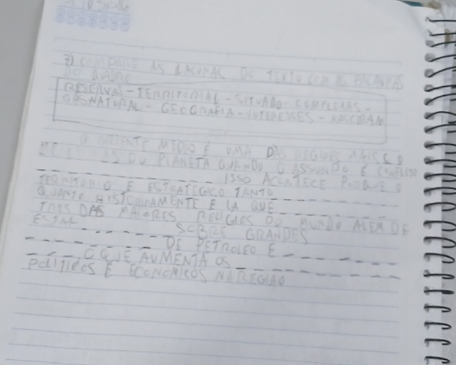 COMPLETE AS LACUNAS DO TEXTO COM AS PALAVRAS
DO QUADRO
RESERVAS - TERRITORIAL - SITUADO - COMPLEXAS -
GÁS NATURAL - GEOGRAFIA - INTERESSES - NASCERAM
O ORIENTE MÉDIO É UMA DAS REGIÕES MAIS
DO PLANETA QUANDO O ASSUNTO É CONFLITO
ISSO ACONTECE PORQUE O
TERRITÓRIO É ESTRATÉGICO TANTO
QUANTO HISTORICAMENTE É LA QUE
TRÊS DAS MAIORES RELIGIÕES DO MUNDO ALÉM DE
ESTAR SOBRE GRANDES
DE PETROLEO E
O QUE AUMENTA OS
POLÍTICOS E ECONÔMICOS NA REGIÃO